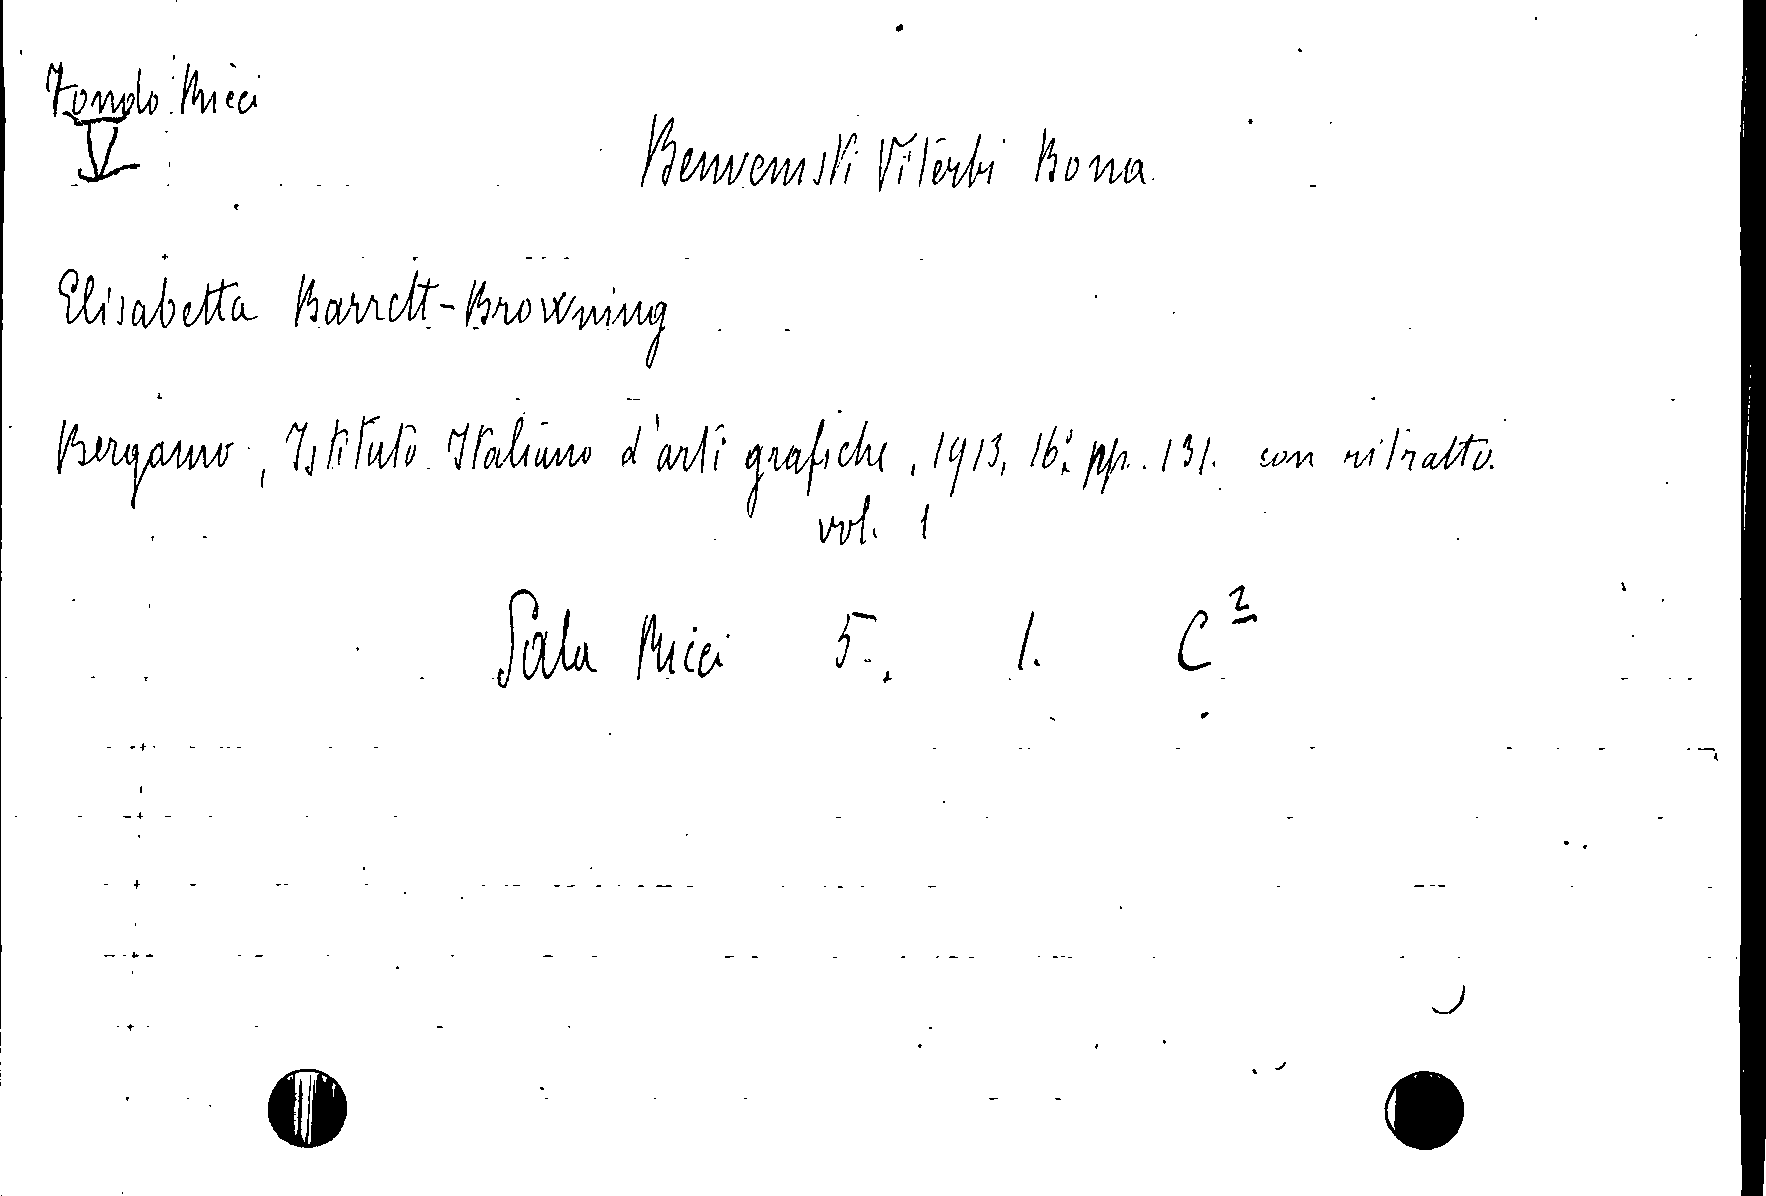 Fondo Ricci
Benvenisti Viterbi Bona
Elisabetta Barrett-Browning
Bergamo, Istituto Italiano d'arti grafiche, 1913, 16°. pp. 131. con ritratto.
vol. 1
Sala Ricci 5. 1. C²